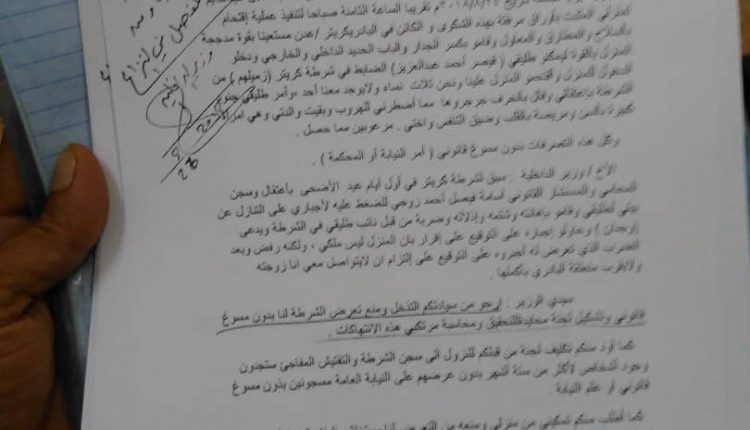 منزلي المثبت بأوراق مرفقة بهذه الشكوى و الكائن في البادري كريتر /عدن مستعينا بقوة مدججة
بالسلاح والمطارق والمعاول وقامو بكسر الجدار والباب الحديد الداخلي والخارجي ودخلو
المنزل بالقوة ليسكنو طليقي ( قيصر أحمد عبدالعزيز) الضابط في شرطة كريتر (زميلهم ) من
الدخول للمنزل و أقتحمو المنزل علينا ونحن ثلاث نساء ولايوجد معنا أحد ،وأمر طليقي جنود
الشرطة بإعتقالي وقال بالحرف جرجروها مما أضطرني للهروب وبقيت والدتي وهي امرأة
كبيرة بالسن ومريضة بالقلب وضيق التنفس واختي . مرعوبين مما حصل .
وكل هذه التصرفات بدون مسوغ قانوني ( أمر النيابة أو المحكمة ) .
الأخ / وزير الداخلية : سبق لشرطة كريتر في أول أيام عيد الأضحى بأعتقال وسجن
المحامي والمستشار القانوني أسامة فيصل أحمد زوجي للضغط عليه لأجباري على التنازل عن
بيتي لطليقي وقامو بإهانته وشتمه وإذلاله وضربة من قبل نائب طليقي في الشرطة ويدعى
( وجدان ) وحاولو إجباره على التوقيع على إقرار بان المنزل ليس ملكي ، ولكنه رفض وبعد
الضرب الذي تعرض له أجبروه على التوقيع على إلتزام ان لايتواصل معي انا زوجته
ولايقرب منطقة البادري بأكملها .
سيدي الوزير : أرجو من سيادتكم التدخل ومنع تعرض الشرطة لنا بدون مسوغ
قانوني وتشكيل لجنة محايدة للتحقيق ومحاسبة مرتكبي هذه الانتهاكات .
كما أود منكم تكليف لجنة من قبلكم للنزول الى سجن الشرطة والتفتيش المفاجئ ستجدون
وجود أشخاص لأكثر من ستة أشهر بدون عرضهم على النيابة العامة مسجونين بدون مسوغ
قانوني أو علم النيابة .
كما أطلب منكم تمكيني من منزلي ومنعه من التعرض